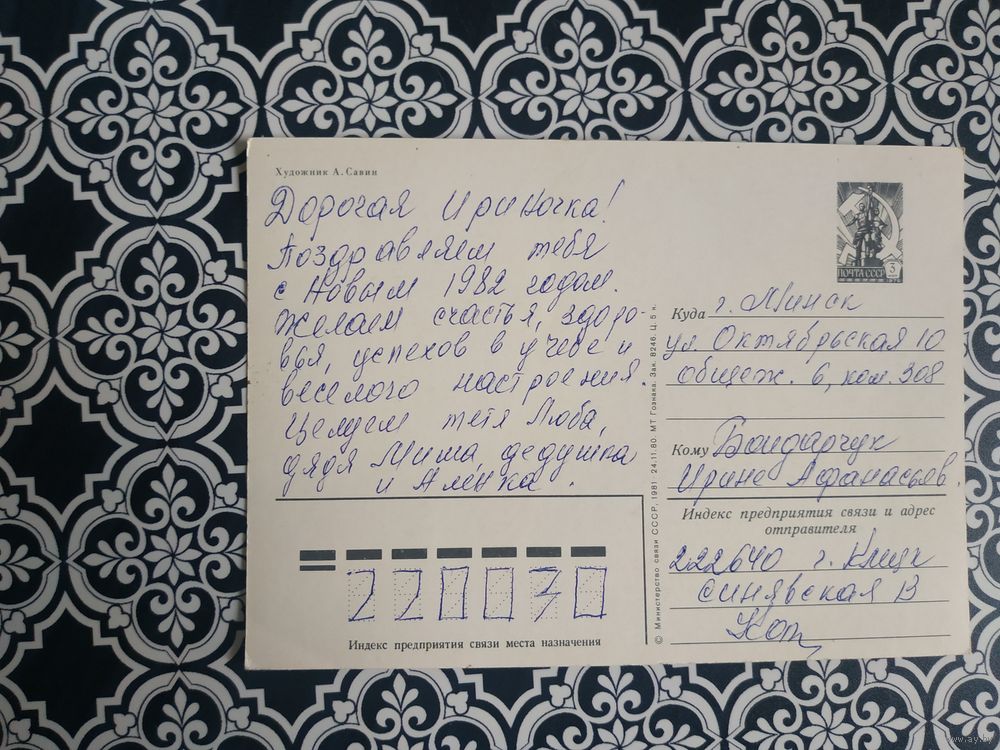 Художник А. Савин
Дорогая Ириночка!
Поздравляем тебя
с Новым 1982 годом.
Желаем счастья, здоро-
вья, успехов в учебе и
веселого настроения.
Целуем тетя Люба,
дядя Миша, дедушка
и Алёнка.
Индекс предприятия связи места назначения
220030
© Министерство связи СССР, 1981 24.11.80. МТ Гознака. Зак. 8246. Ц. 5 к.
ПОЧТА СССР 3
Куда г. Минск
ул Октябрьская 10
общеж. 6, ком. 308
Кому Бондарчук
Ирине Афанасьев.
Индекс предприятия связи и адрес
отправителя
222640 г. Клецк
Синявская 13
Кот
www.ay.by